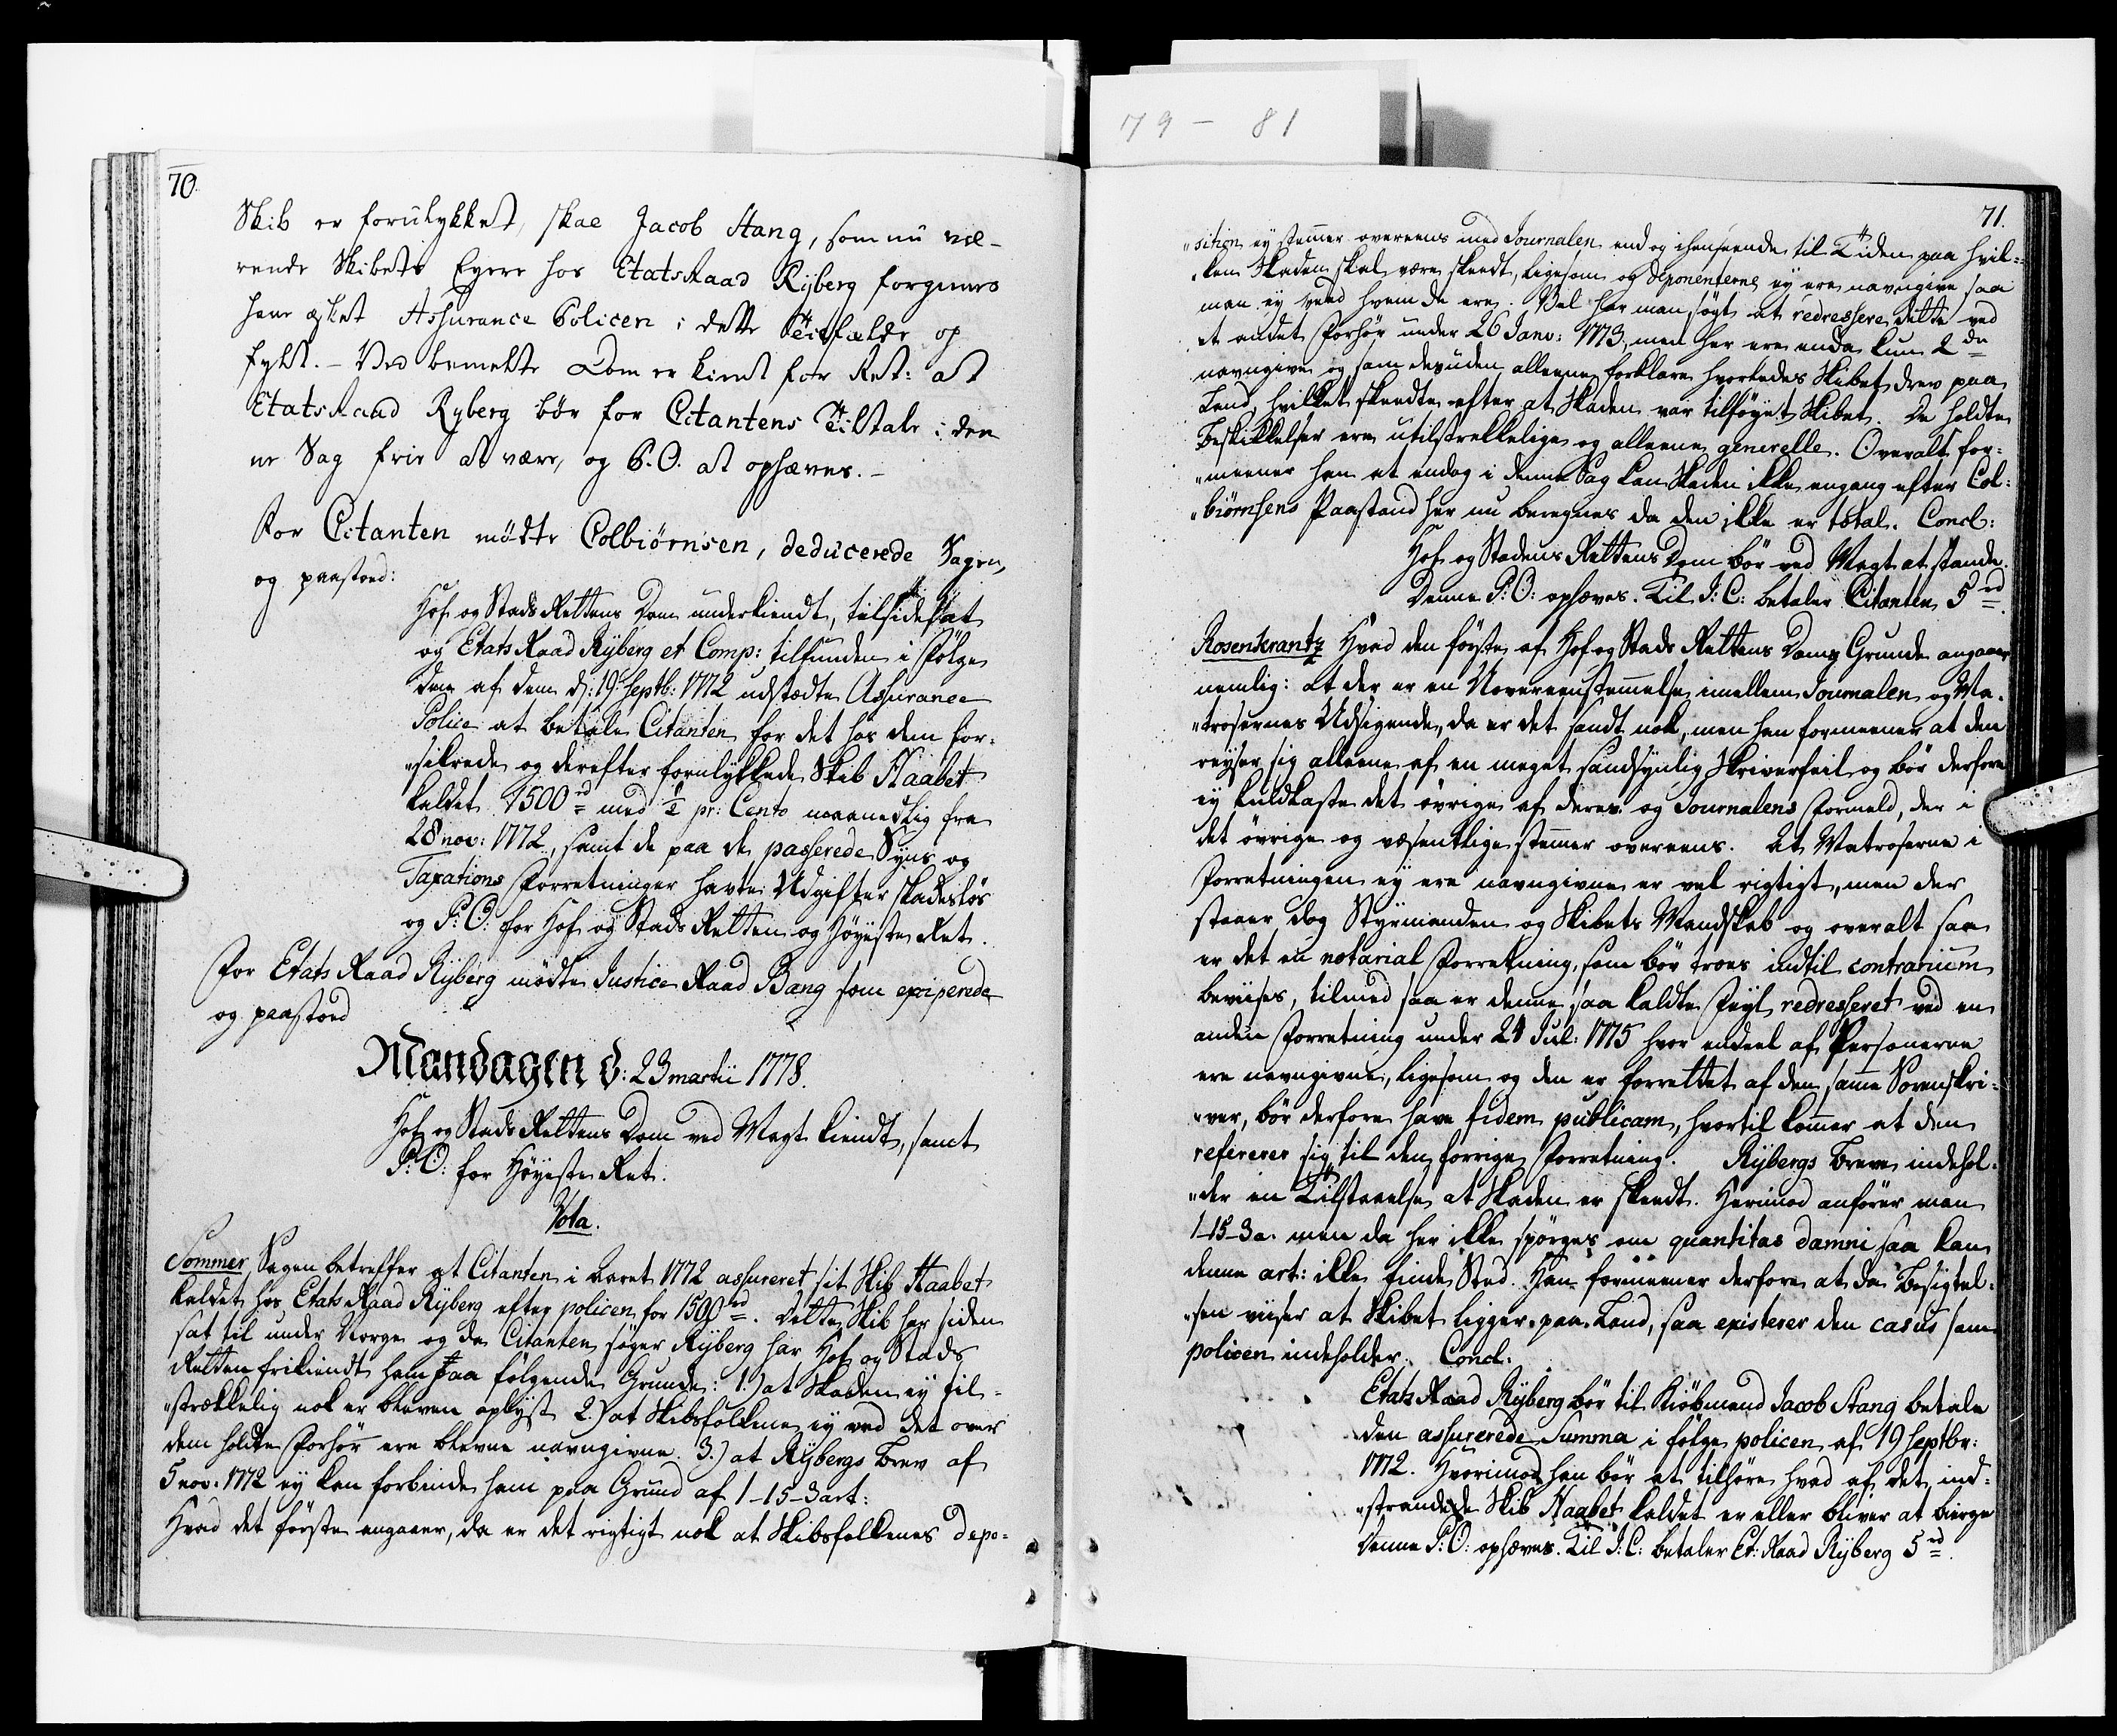 79 - 81
70.
Skib er forulykket, skal Jacob Stang, som nu væ-
rende Skibets Eyere hos EtatsRaad Ryberg forgieves
have æsket Assurance Policen i dette Tilfælde op
fyldt. - Ved bemelte Dom er kiendt for Ret: at
EtatsRaad Ryberg bør for Citantens Tiltale i den
ne Sag frie at være, og P. O. at ophæves. -
For Citanten mødte Colbiørnsen, deducerede Sagen,
og paastod:
Hof og Stads Rettens Dom underkiendt, tilsidesat
og Etats Raad Ryberg et Comp: tilfunden i Følge
den af dem d: 19 Septb: 1772 udstædte Assurance
Police at betale Citanten for det hos dem for-
"sikrede og derefter forulykkede Skib Haabet
kaldet 1500 rd med ½ pr: Cento maanedlig fra
28 nov: 1772, samt de paa de passerede Syns og
Taxations Forretninger havte Udgifter skadesløs
og P: O: for Hof og Stads Retten og Høyeste Ret.
For Etats Raad Ryberg mødte Justice Raad Bang som exciperede
og paastoed
Mandagen d: 23 martii 1778.
Hof og Stads Rettens Dom ved Magt kiendt, samt
P: O: for Høyeste Ret.
Vota.
Sommer Sagen betreffer at Citanten i Aaret 1772 assureret sit Skib Haabet
kaldet hos Etats Raad Ryberg efter policen for 1500 rd. Dette Skib har siden
sat til under Norge og da Citanten søger Ryberg har Hof og Stads
Retten frikiendt ham paa følgende Grunde: 1.) at Skaden ey til-
"strækkelig nok er bleven oplyst 2.) at Skibsfolkene ey ved det over
dem holdte Forhør ere blevne navngivne. 3.) at Rybergs Brev af
5 nov: 1772 ey kan forbinde ham paa Grund af 1-15-3 art:
Hvad det første angaaer, da er det rigtigt nok at Skibsfolkenes depo-
71.
"sition ey stemer overeens med Journalen end og i henseende til Tiden paa hvil-
"ken Skaden skal være skeedt, ligesom og Deponenterne ey ere navngivne saa
man ey veed hvem de ere. Vel har man søgt at redressere dette ved
et andet Forhør under 26 Janv: 1773, men her ere enda kun 2 de
navngivne og som desuden alleene forklare hvorledes Skibet drev paa
Land, hvilket skeedte efter at Skaden var tilføyet Skibet. De holdte
Beskikkelser ere utilstrekkelige og alleene generelle. Overalt for-
"meener han at endog i denne Sag kan Skaden ikke engang efter Col-
"biørnsens Paastand her nu beregnes da den ikke er total. Concl:
Hof og Stadens Rettens Dom bør ved Magt at stande.
Denne P: O: ophæves. Til J: C: betaler Citanten 5 rd.
Rosenkrantz Hvad den første af Hof og Stads Rettens Doms Grunde angaaer
nemlig: at der er en Uovereenstemelse imellem Journalen og Ma-
"trosernes Udsigende, da er det sandt nok, men han formeener at den
reyser sig alleene af en meget sandsynlig Skriverfeil og bør derfore
ey kuldkaste det øvrige af deres og Journalens Formeld, der i
det øvrige og væsentlige stemer overeens. At Matroserne i
Forretningen ey ere navngivne er vel rigtigt, men der
staaer dog Styrmanden og Skibets Mandskab og overalt saa
er det en notarial Forretning, som bør troes indtil contrarium
beviises, tilmed saa er denne saa kaldte Feyl redresseret ved en
anden Forretning under 24 Jul: 1775 hvor endeel af Personerne
ere navngivne, ligesom og den er forrettet af den same Sorenskri-
"ver, bør derfore have fidem publicam, hvortil komer at den
refererer sig til den forrige Forretning. Rybergs Breve indehol-
"der en Tilstaaelse at Skaden er skeedt. Herimod anfører man
1-15-3 a. men da her ikke spørges om quantitas damni saa kan
denne art: ikke finde Sted. Han formeener derfore at da Besigtel-
"sen viiser at Skibet ligger paa Land, saa existerer den casus som
policen indeholder. Concl:
Etats Raad Ryberg bør til Kiøbmand Jacob Stang betale
den assurerede Summa i følge policen af 19 Septbr:
1772. Hvorimod han bør at tilhøre hvad af det ind-
"strandede Skib Haabet kaldet er eller bliver at bierge
Denne P: O: ophæves. Til J: C: betaler Et: Raad Ryberg 5 rd.